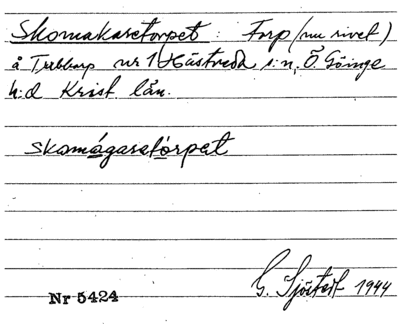 Skomakaretorpet: Torp (nu rivet)
å Trebtorp nr 1 Hästveda s:n, Ö. Göinge
h:d Krist. län.
skomågaretórpet
G. Sjöstedt 1944
Nr 5424